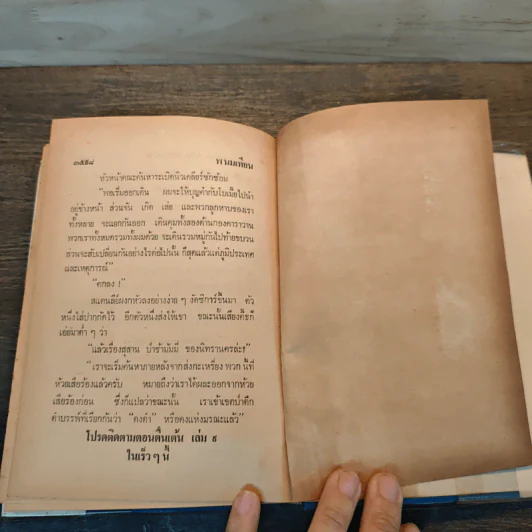 ๓๕๕๘ พนมเทียน
หัวหน้าคณะค้นหาระเบิดนิวเคลียร์ซักซ้อม
"พอเริ่มออกเดิน ผมจะให้บุญคำกับใบเมี้ยไปนำ
อยู่ข้างหน้า ส่วนจัน เกิด เส่ย และพวกลูกหาบของเรา
ทั้งหลาย จะแยกกันออก เดินคุมทั้งสองด้านกองคาราวาน
พวกเราทั้งหมดรวมทั้งผมด้วย จะเดินรวมหมู่กันไปท้ายขบวน
ส่วนจะสับเปลี่ยนกันอย่างไรต่อไปนั้น ก็สุดแล้วแต่ภูมิประเทศ
และเหตุการณ์"
"ตกลง !"
สแตนลีย์ผงกหัวลงอย่างง่าย ๆ งัดซิการ์ขึ้นมา ตัว
หนึ่งใส่ปากกัดไว้ อีกตัวหนึ่งส่งให้เขา ขณะนั้นเสียงคีธก็
เอ่ยมาต่ำ ๆ ว่า
"แล้วเรื่องสุสาน ป่าช้ามัมมี่ ของนิทรานครล่ะ?"
"เราจะเริ่มค้นหาภายหลังจากส่งกะเหรี่ยง พวก นี้ที่
ห้วยเสือร้องแล้วครับ หมายถึงว่าเราได้ผละออกจากห้วย
เสือร้องก่อน ซึ่งก็แปลว่าขณะนั้น เราเข้าเขตป่าดึก
ดำบรรพ์ที่เรียกกันว่า "ดงดำ" หรือดงแห่งมรณะแล้ว"
โปรดติดตามตอนตื่นเต้น เล่ม ๙
ในเร็ว ๆ นี้